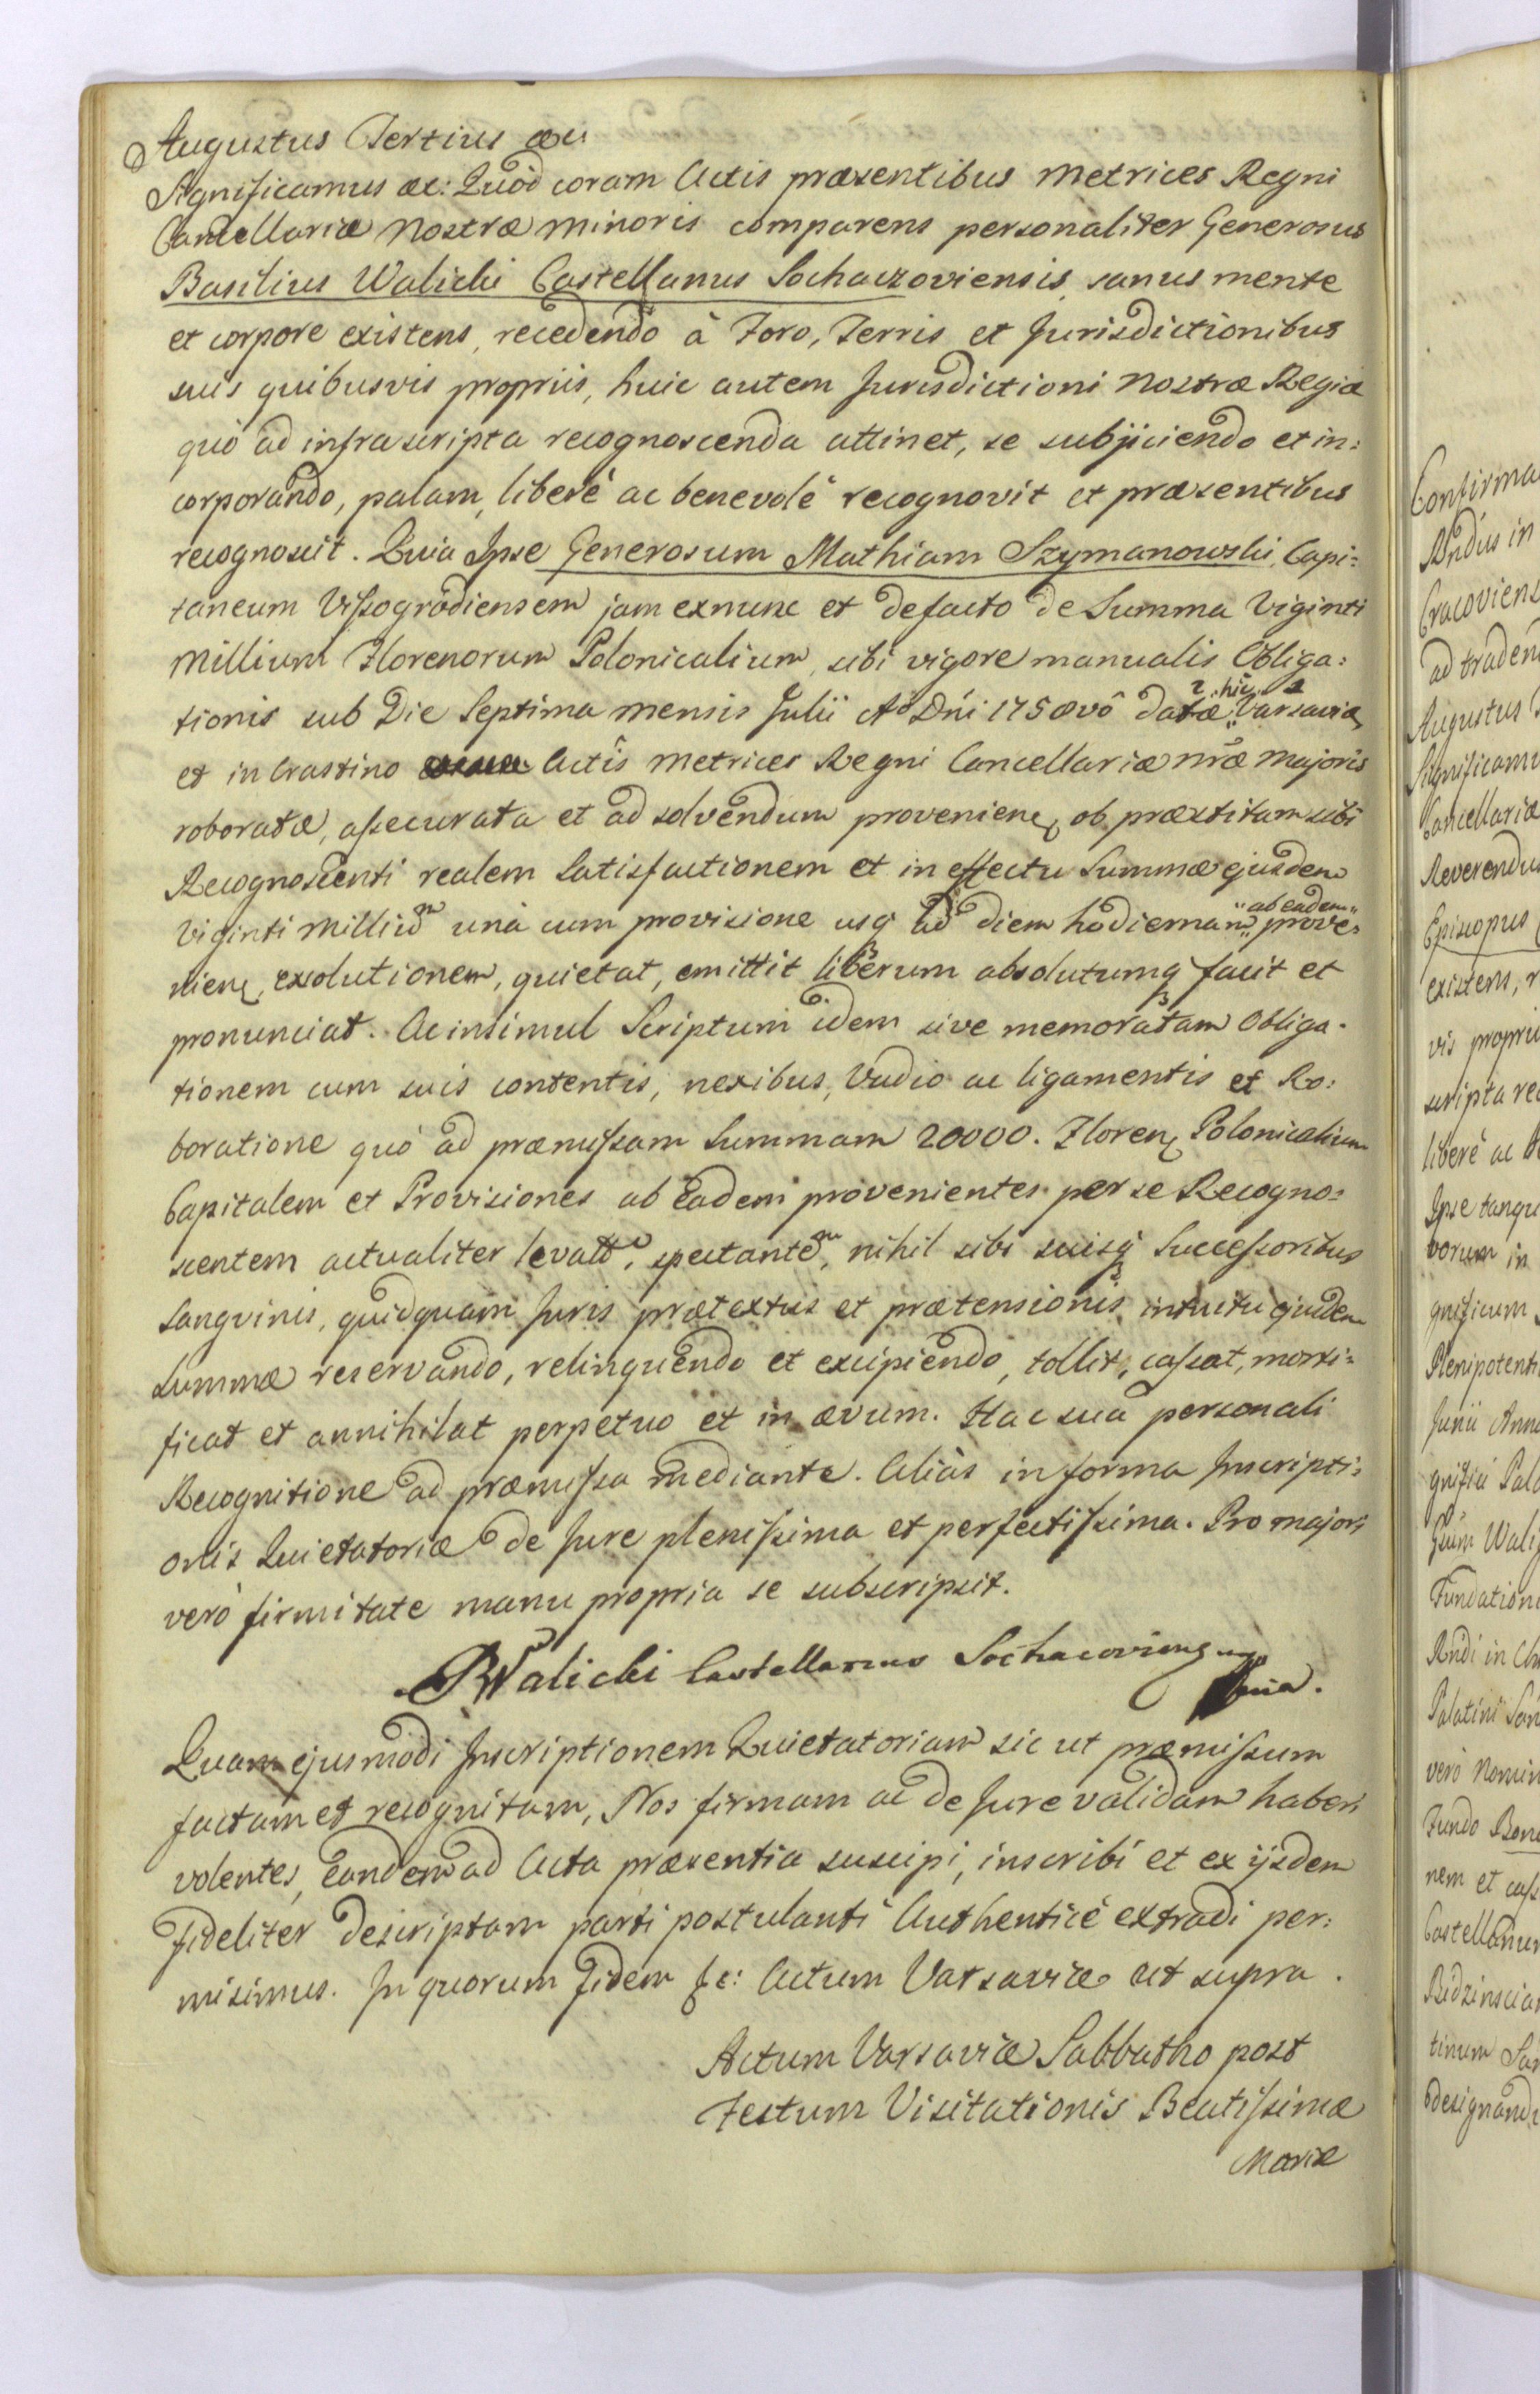 Augustus Tertius &c:
Significamus &c: Quòd coram Actis præsentibus Metrices Regni
Cancellariæ Nostræ Minoris comparens personaliter Generosus
Basilius Walicki Castellanus Sochaczoviensis, sanus mente
et corpore existens, recedendo à Foro, Terris et Jurisdictionibus
suis quibusvis propriis, huic autem Jurisdictioni Nostræ Regiæ
quò ad infrascripta recognoscenda attinet, se subjiciendo et in:
corporando, palam, liberè ac benevolè recognovit et præsentibus
recognoscit. Quia Ipse Generosum Mathiam Szymanowski, Capi:
taneum Vissogrodiensem jam exnunc et defacto de Summa Viginti
Millium Florenorum Polonicalium, sibi vigore manualis Obliga:
tionis sub Die Septima mensis Julii Aô Dńi 175 ævô datæ "hic" Varsaviæ
et in Crastino Actis Metrices Regni Cancellariæ nræ Majoris
roboratæ, assecurata et ad solvendum provenienę, ob præstitam sibi
Recognoscenti realem Satisfactionem et in effectu Summæ ejusdem
Viginti Milliũm unà cum provisione usq́ ad diem hodiernam "ab eadem" prove:
nienę, exolutionem, quietat, emittit liberum absolutumq́ facit et
pronunciat. Ac insimul Scriptum idem sive memoratam Obliga:
tionem cum suis contentis, nexibus, Vadio ac ligamentis et Ro:
boratione quò ad præmissam Summam 20000. Florenę Polonicalium
Capitalem et Provisiones ab Eadem provenientes per se Recogno:
scentem actualiter levatt, spectantẽm, nihil sibi suisq́ Successoribus
Sangvinis, quidquam Juris prætextus et prætensionis intuitu ejusdem
Summæ reservando, relinquendo et excipiendo, tollit, cassat, morti:
ficat et annihilat perpetuo et in ævum. Hac sua personali
Recognitione ad præmissa mediante. Aliàs in forma Inscripti:
onis Quietatoriæ de Jure plenissima et perfectissima. Pro majori
verò firmitate manu propria se subscripsit.
BWalicki Castellanus Sochacovienę mpria.
Quam ejusmodi Inscriptionem Quietatoriam sic ut præmissum
factam et recognitam, Nos firmam ac de Jure validam haberi
volentes, Eandem ad Acta præsentia suscipi, inscribi et ex ijsdem
fideliter descriptam parti postulanti Authenticè extradi per:
misimus. In quorum Fidem &c: Actum Varsaviæ ut supra.
Actum Varsaviæ Sabbatho post
Festum Visitationis Beatissimæ
Mariæ
Confirma
Rndus in
Cracoviens
ad traden
Augustus
Significamu
Cancellariæ
Reverendu
Episcopus
existens, r
vis propri
scripta rec
liberè ac
Ipse tanqu
vorum in
gnificum
Plenipotenti
Junii Anno
gnifici Pala
Gsum Wali
Fundation
Rndi in Ch
Palatini San
verò Nomin
Fundo Bon
nem et cass
Castellanu
Bidzinscia
tinum San
designand